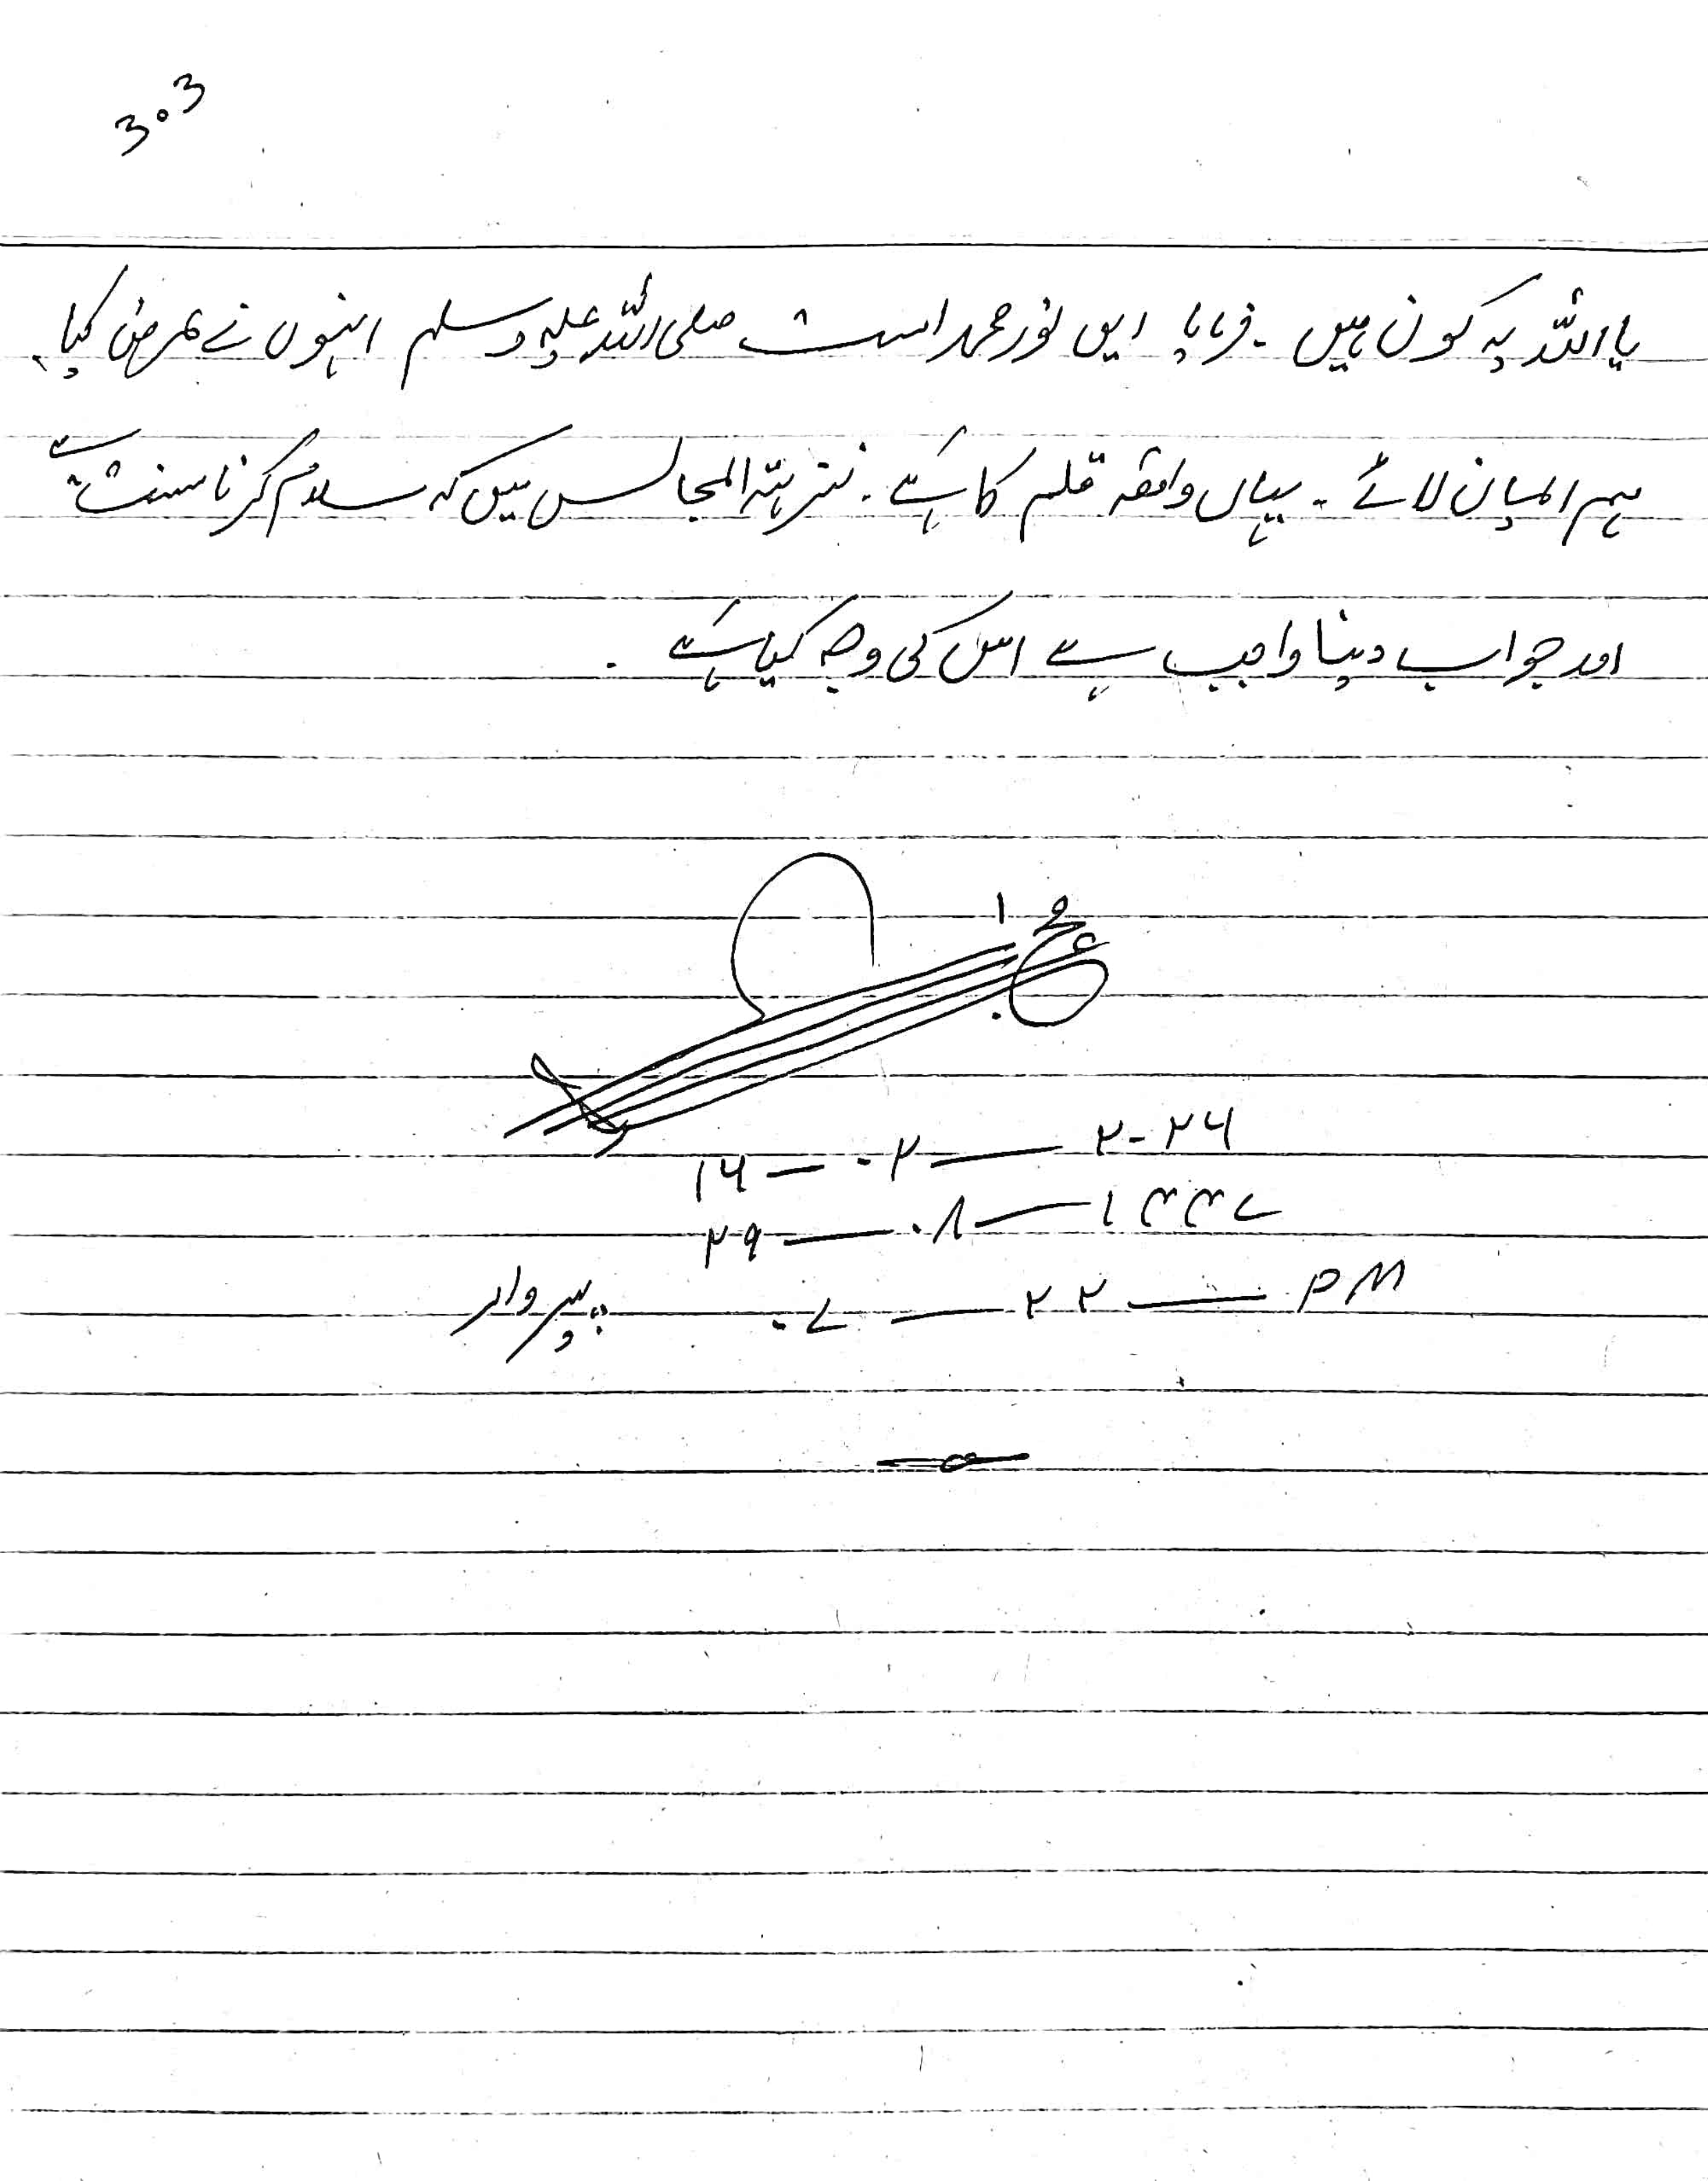 303
یا اللہ یہ کون ہیں ۔ فرمایا ایں نور محمد است صلی اللہ علیہ وسلم انہوں نے عرض کیا
ہم ایمان لائے ۔ یہاں واقعہ قلم کا ہے ۔ نزہتہ المجالس میں کہ سلام کرنا سنت ہے
اور جواب دینا واجب ہے اس کی وجہ کیا ہے ۔
۱۶ — ۰۲ — ۲۰۲۶
۲۹ — ۰۸ — ۱۴۴۷
پیر وار ۰۷ — ۲۲ — PM